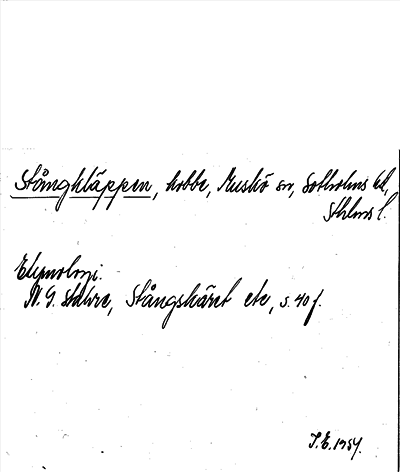 Stångkläppen, kobbe, Muskö sn, Sotholms hd,
Sthlms l.
Etymologi.
N. G. Stahre, Stångskäret etc, s. 40 f.
S.E. 1954.